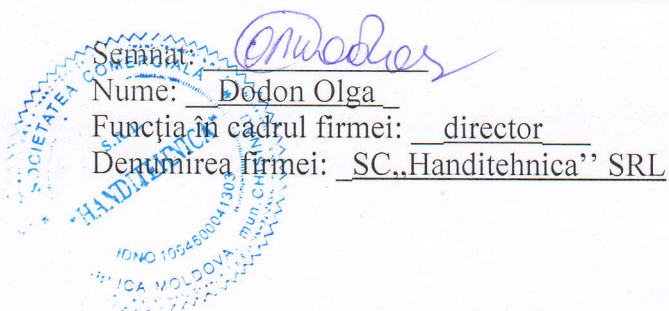 Semnat:
Nume: Dodon Olga
Funcţia în cadrul firmei: director
Denumirea firmei: SC,,Handitehnica’’ SRL
SOCIETATEA COMERCIALĂ
S.R.L.
"HANDITEHNICA"
mun. CHIŞINĂU
MOLDOVA